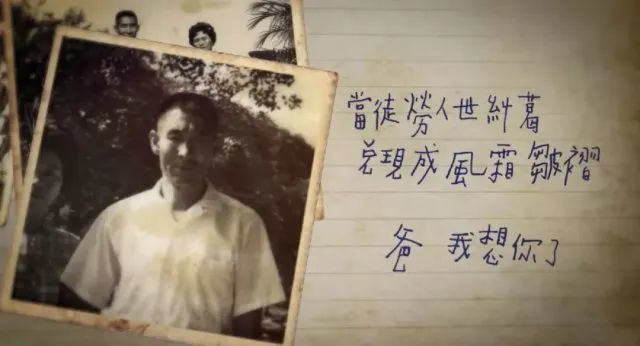 當徒勞人世糾葛
兌現成風霜皺褶
爸 我想你了